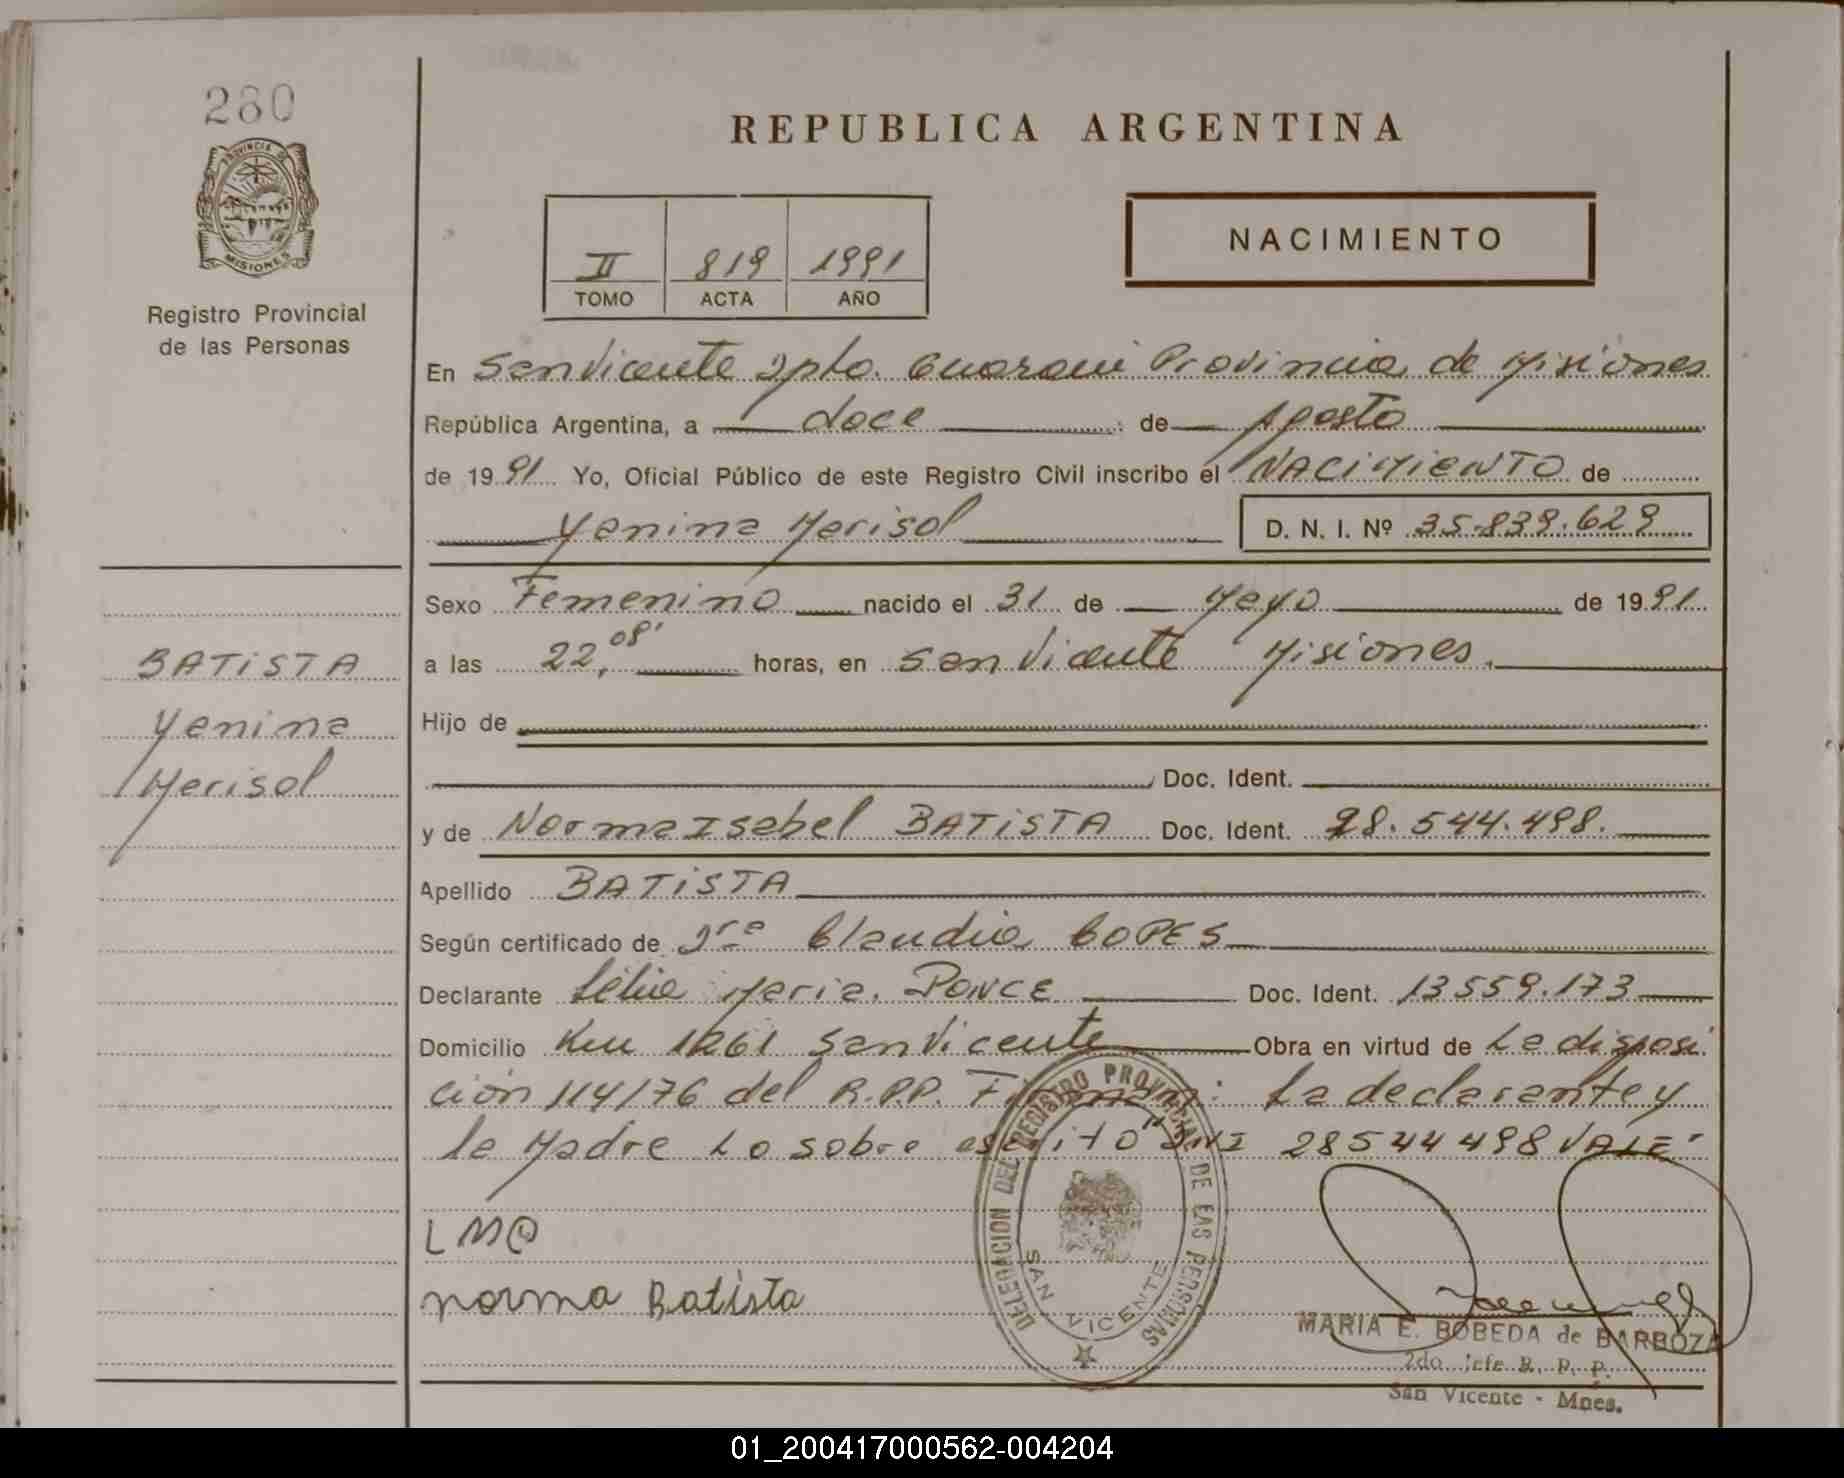 280
PROVINCIA DE
MISIONES
Registro Provincial
de las Personas
REPUBLICA ARGENTINA
NACIMIENTO
II 819 1991
TOMO ACTA AÑO
En San Vicente Dpto. Guarani Provincia de Misiones
República Argentina, a doce de Agosto
de 1991 Yo, Oficial Público de este Registro Civil inscribo el NACIMIENTO de
Yanina Marisol D. N. I. Nº 35.839.629
Sexo Femenino nacido el 31 de Mayo de 1991
a las 22,08' horas, en San Vicente Misiones.
Hijo de
Doc. Ident.
y de Norma Isabel BATISTA Doc. Ident. 28.544.498.
Apellido BATISTA
Según certificado de Dra Claudia COPES
Declarante Lelia Maria PONCE Doc. Ident. 13559.173
Domicilio Km 1261 San Vicente Obra en virtud de La disposi
ción 114/76 del R.P.P. Firman: La declarante y
la Madre Lo sobre escrito "DNI 28544498 VALE"
BATISTA
Yanina
Marisol
norma Batista
DELEGACION DEL REGISTRO PROVINCIAL DE LAS PERSONAS
SAN VICENTE
MARIA E. BOBEDA de BARBOZA
2do Jefe R. P. P.
San Vicente - Mnes.
01_200417000562-004204